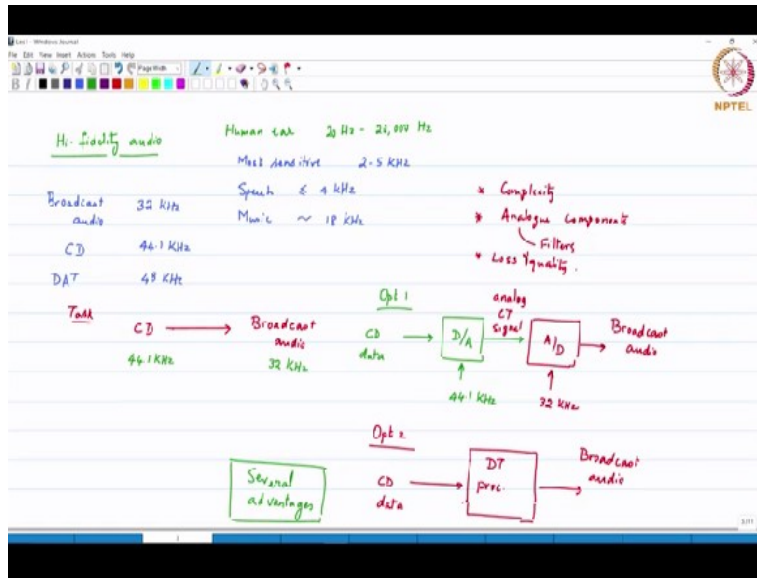 Les1 - Windows Journal
File Edit View Insert Actions Tools Help
Page Width
B I
NPTEL
Hi-fidelity audio
Human ear 20 Hz - 20,000 Hz
Most sensitive 2-5 KHz
Speech ≤ 4 KHz
Music ~ 18 KHz
Broadcast audio 32 KHz
CD 44.1 KHz
DAT 48 KHz
* Complexity
* Analogue Components
Filters
* Loss quality.
Task
CD → Broadcast audio
44.1 KHz 32 KHz
Opt 1
CD data → D/A
analog CT signal
A/D → Broadcast audio
44.1 KHz
32 KHz
Opt 2
CD data → DT proc. → Broadcast audio
Several advantages